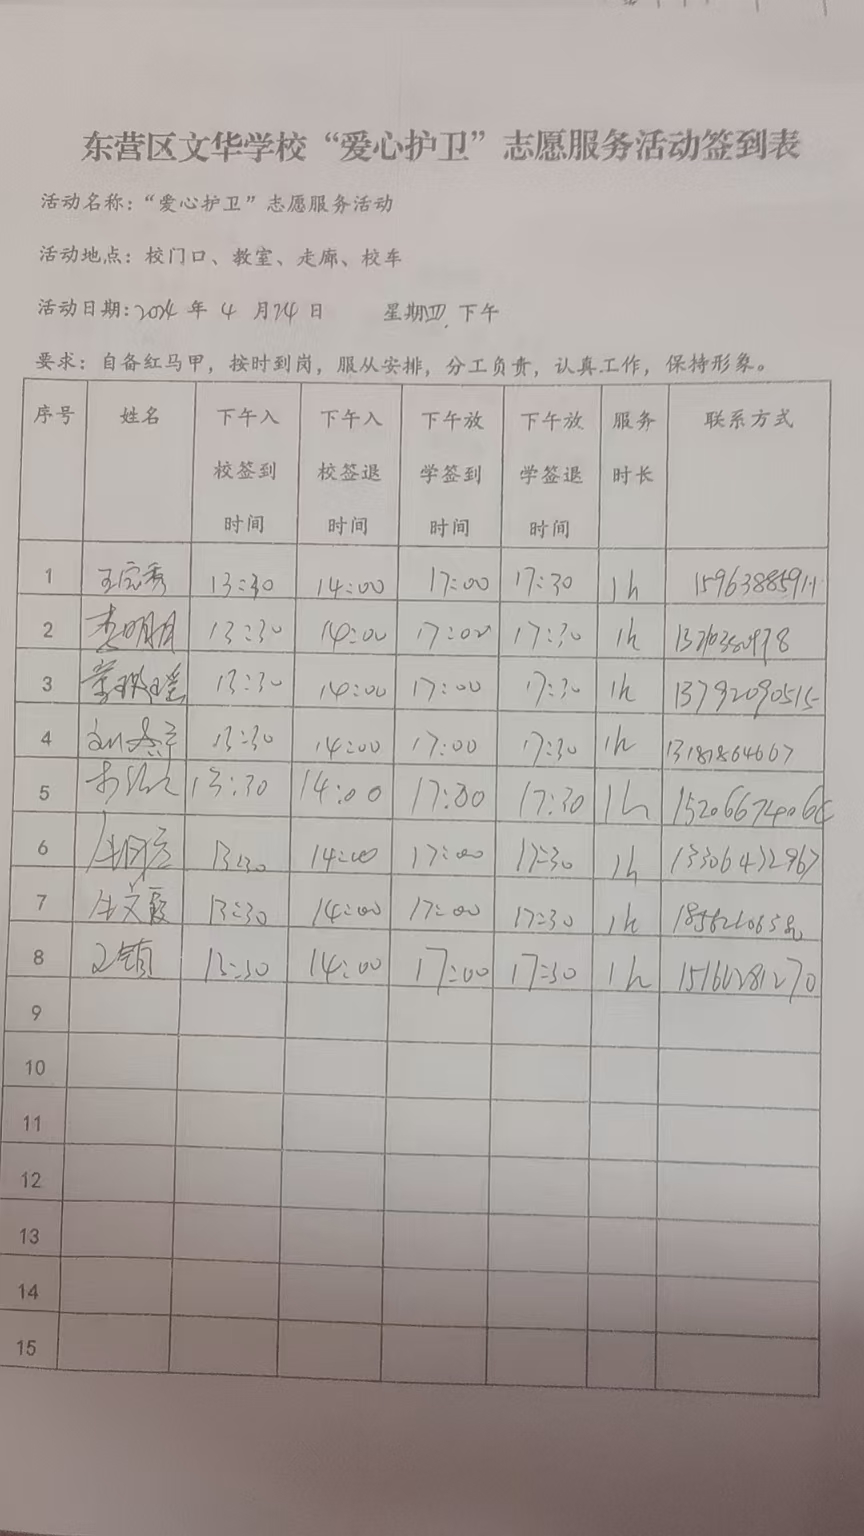 东营区文华学校“爱心护卫”志愿服务活动签到表
活动名称:“爱心护卫”志愿服务活动
活动地点: 校门口、教室、走廊、校车
活动日期:2024 年 4 月24日 星期四 下午
要求: 自备红马甲,按时到岗,服从安排,分工负责,认真工作,保持形象。
序号 姓名 下午入校签到时间 下午入校签退时间 下午放学签到时间 下午放学签退时间 服务时长 联系方式
1 13:30 14:00 17:00 17:30 1h
2 李明月 13:30 14:00 17:00 17:30 1h
3 13:30 14:00 17:00 17:30 1h 13792090515
4 13:30 14:00 17:00 17:30 1h
5 13:30 14:00 17:00 17:30 1h
6 13:30 14:00 17:00 17:30 1h 13306432967
7 13:30 14:00 17:00 17:30 1h
8 13:30 14:00 17:00 17:30 1h
9
10
11
12
13
14
15